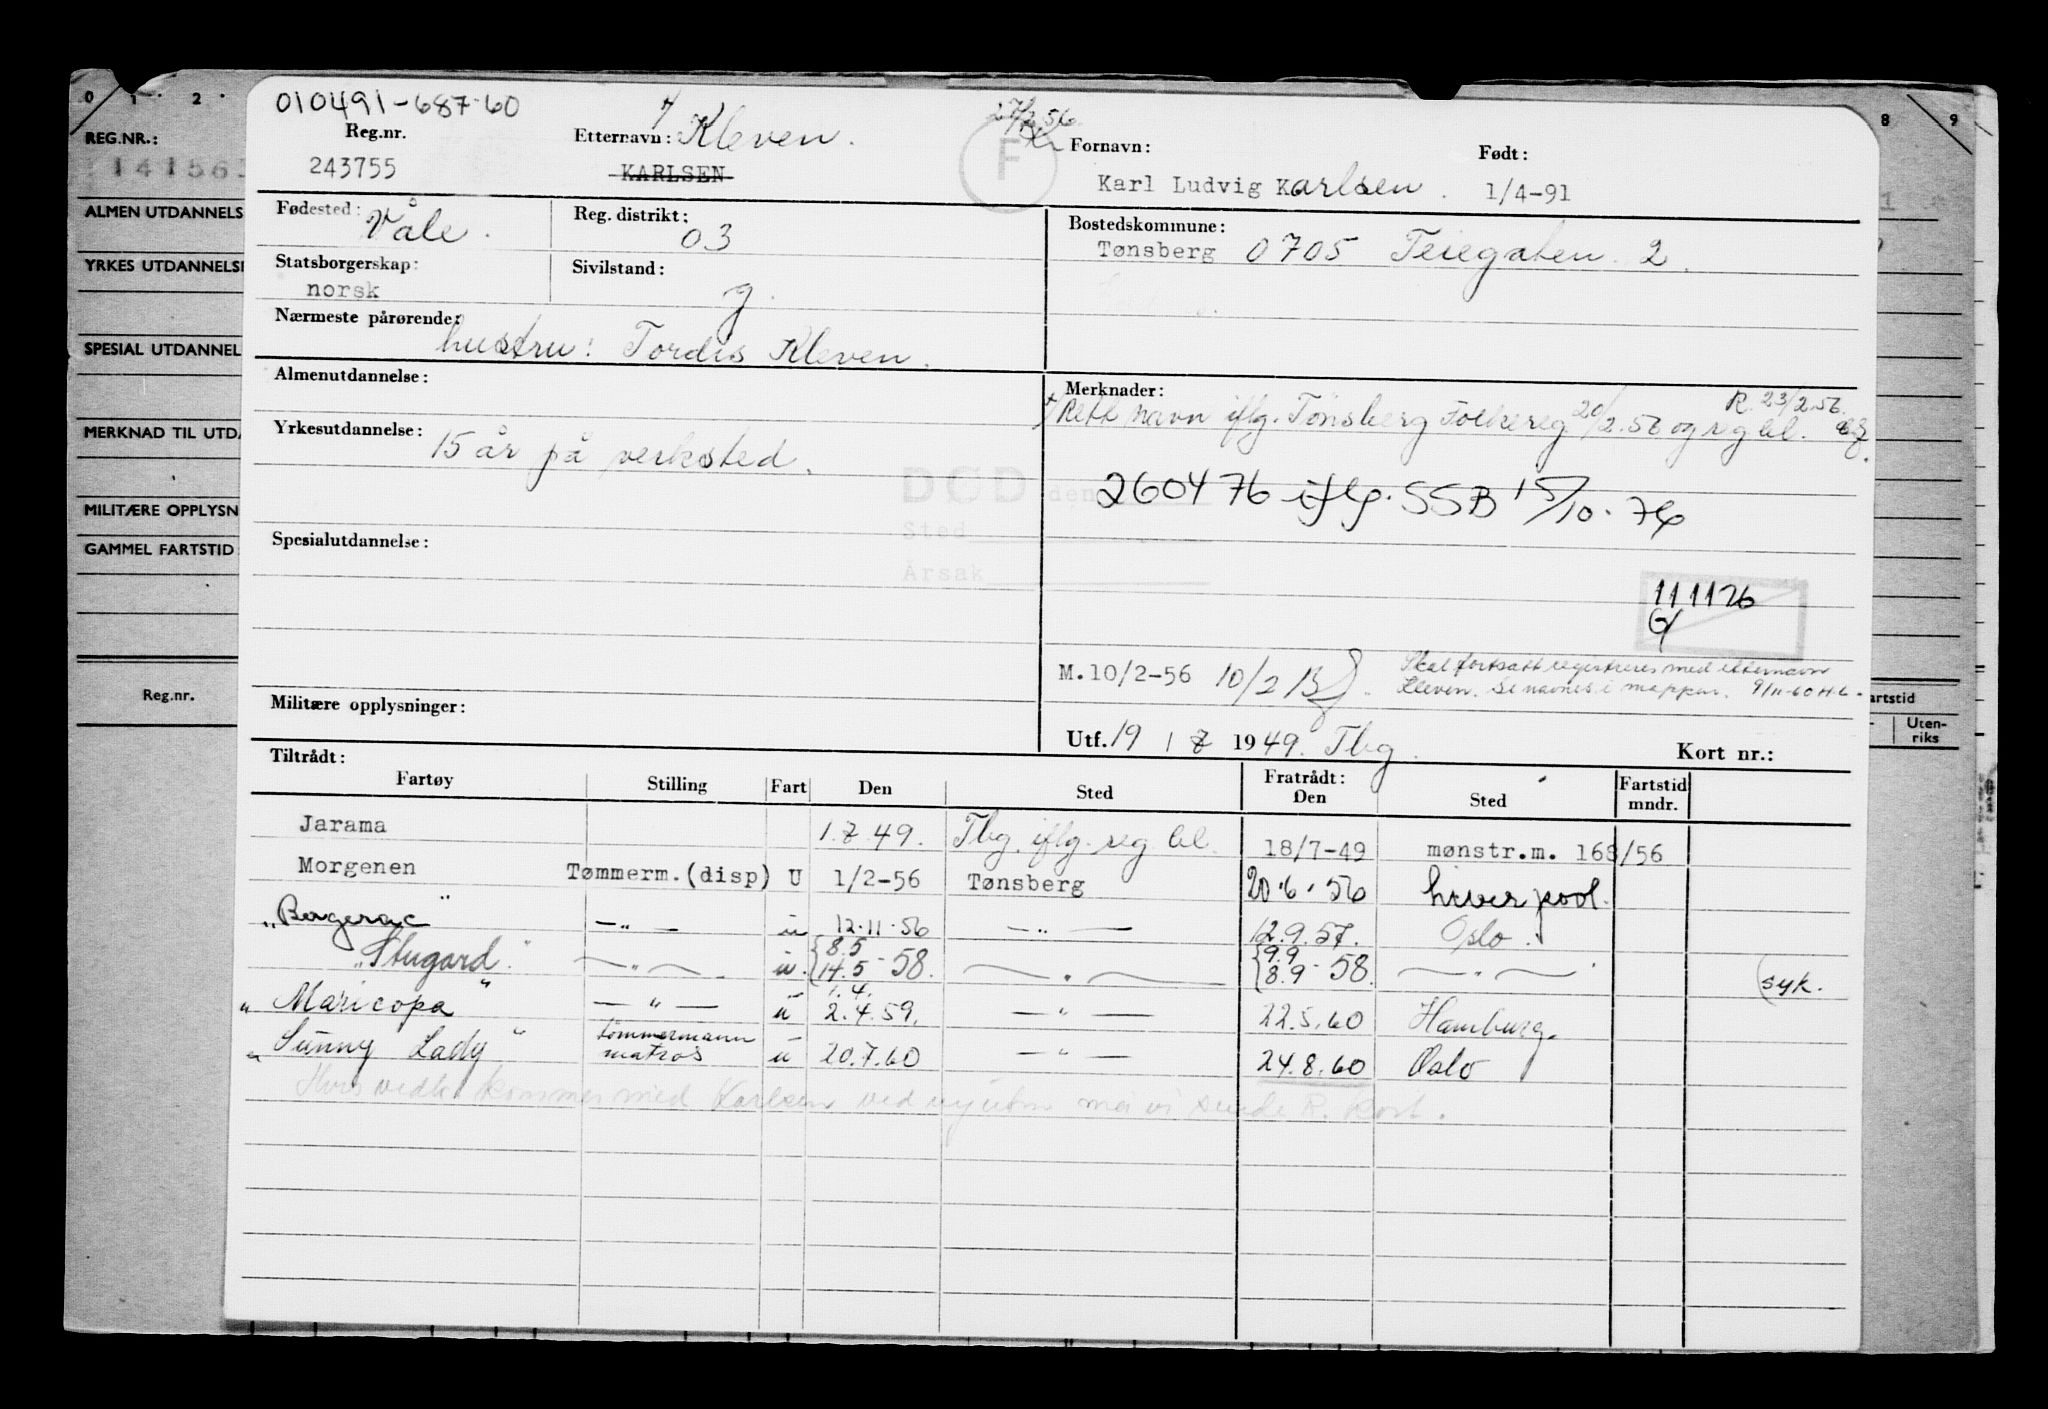 0 1 2 8 9
REG.NR.:
ALMEN UTDANNELS
YRKES UTDANNELSE
SPESIAL UTDANNEL
MERKNAD TIL UTDA
MILITÆRE OPPLYSN
GAMMEL FARTSTID
Reg.nr.
artstid
Uten-
riks
010491-687-60
Reg.nr.
243755
Etternavn: Kleven.
KARLSEN
F
Fornavn:
Karl Ludvig Karlsen.
Født:
1/4-91
Fødested: Våle.
Reg. distrikt: 03
Bostedskommune:
Tønsberg 0705 Teiegaten 2.
Statsborgerskap:
norsk
Sivilstand:
g.
Nærmeste pårørende:
hustru: Tordis Kleven.
Almenutdannelse:
Merknader:
R. 23/2.56.
Rett navn iflg. Tønsberg Folkereg 20/2.56 og rg bl.
Yrkesutdannelse:
15 år på verksted.
DØD den
260476 iflg. SSB 15/10-76
Sted
Spesialutdannelse:
Årsak
111176
M.10/2-56 10/2
Skal fortsatt registreres med etternavn
Kleven. Se navnes i mappen. 9/11-60 H L.
Militære opplysninger:
Utf. 19 / 7 1949. Tbg.
Kort nr.:
Tiltrådt:
Fartøy Stilling Fart Den Sted Fratrådt: Den Sted Fartstid mndr.
Jarama 1.7.49. Tbg. iflg. reg bl. 18/7-49 mønstr.m. 168/56
Morgenen Tømmerm.(disp) U 1/2-56 Tønsberg 20.6.56 Liverpool.
"Bergerac" —"— u 12.11.56 —"— 12.9.57. Oslo.
"Stugard" —"— u. {8.5 14.5 - 58. —"— {9.9 8.9 - 58. —"— (syk.
"Maricopa" —"— u 1.4. 2.4.59. —"— 22.5.60 Hamburg.
"Sunny Lady" tømmermann matros u 20.7.60 —"— 24.8.60 Oslo
Hvis vedk. kommer med Karlsen ved ny utm må vi sende R. kort.